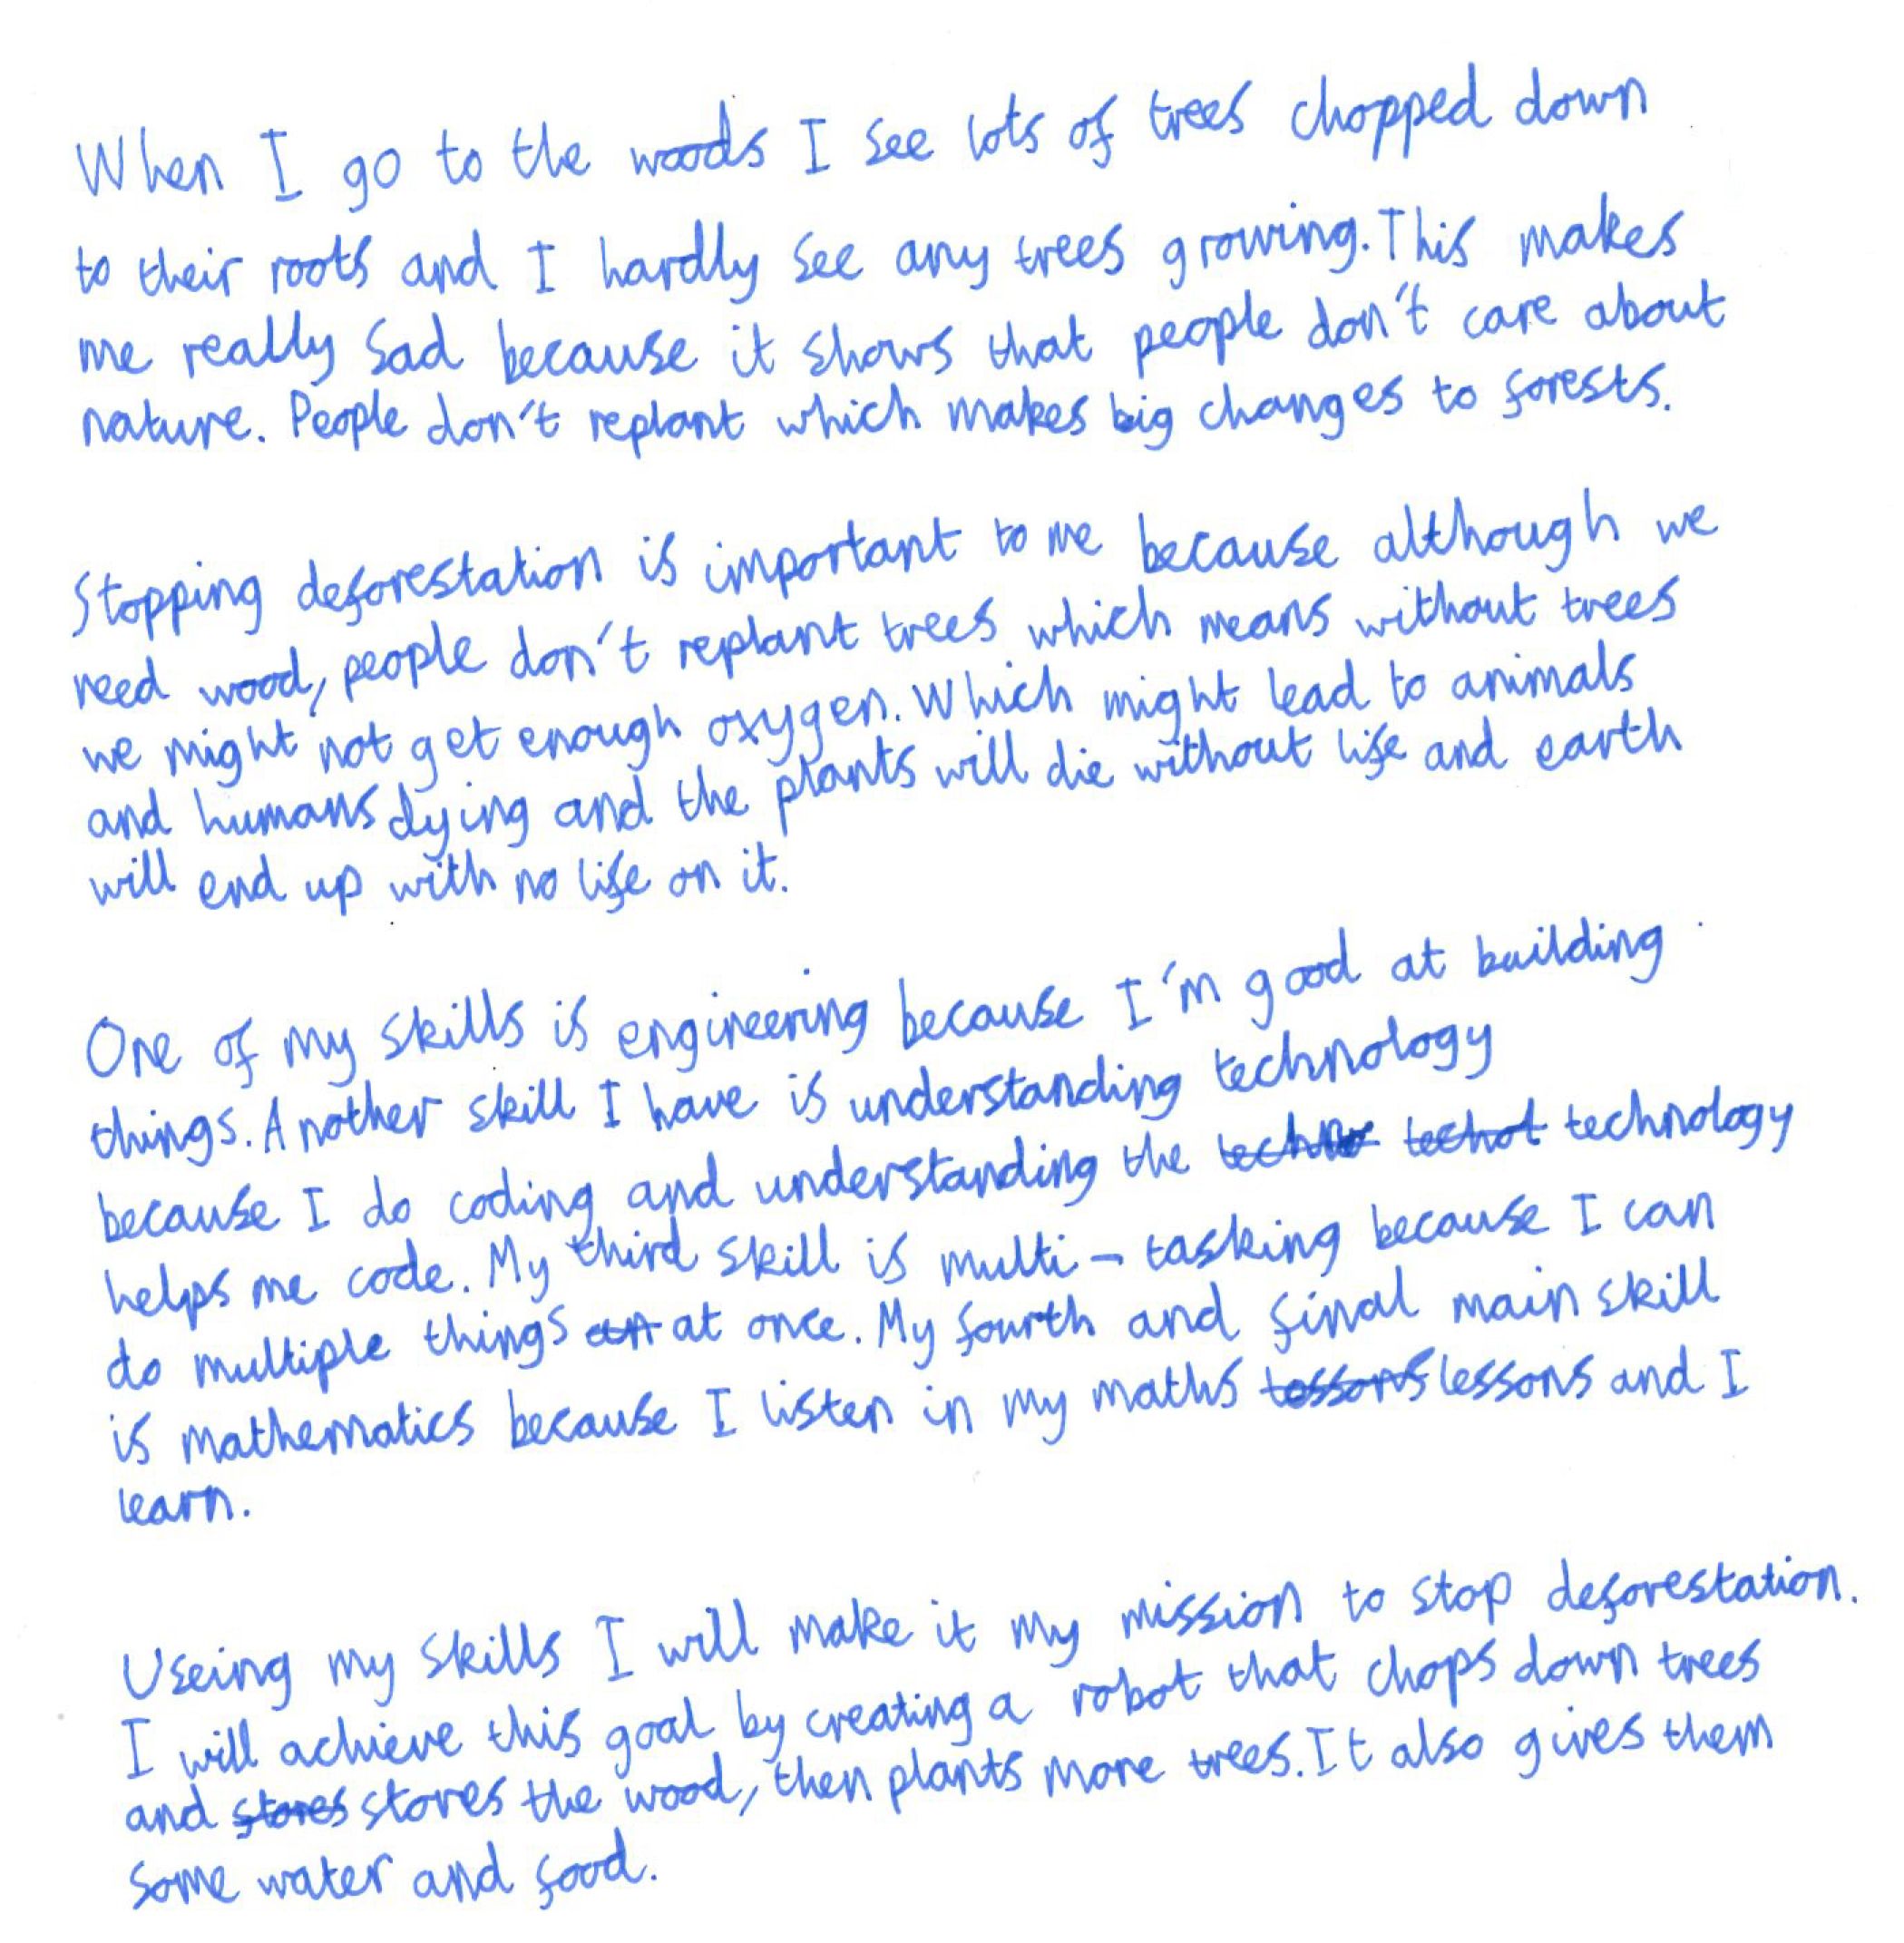 When I go to the woods I see lots of trees chopped down
to their roots and I hardly see any trees growing. This makes
me really sad because it shows that people don't care about
nature. People don't replant which makes big changes to forests.
Stopping deforestation is important to me because although we
need wood, people don't replant trees which means without trees
we might not get enough oxygen. Which might lead to animals
and humans dying and the plants will die without life and earth
will end up with no life on it.
One of my skills is engineering because I'm good at building
things. Another skill I have is understanding technology
because I do coding and understanding the technology
helps me code. My third skill is multi-tasking because I can
do multiple things at once. My fourth and final main skill
is mathematics because I listen in my maths lessons and I
learn.
Useing my skills I will make it my mission to stop deforestation.
I will achieve this goal by creating a robot that chops down trees
and stores the wood, then plants more trees. It also gives them
some water and food.